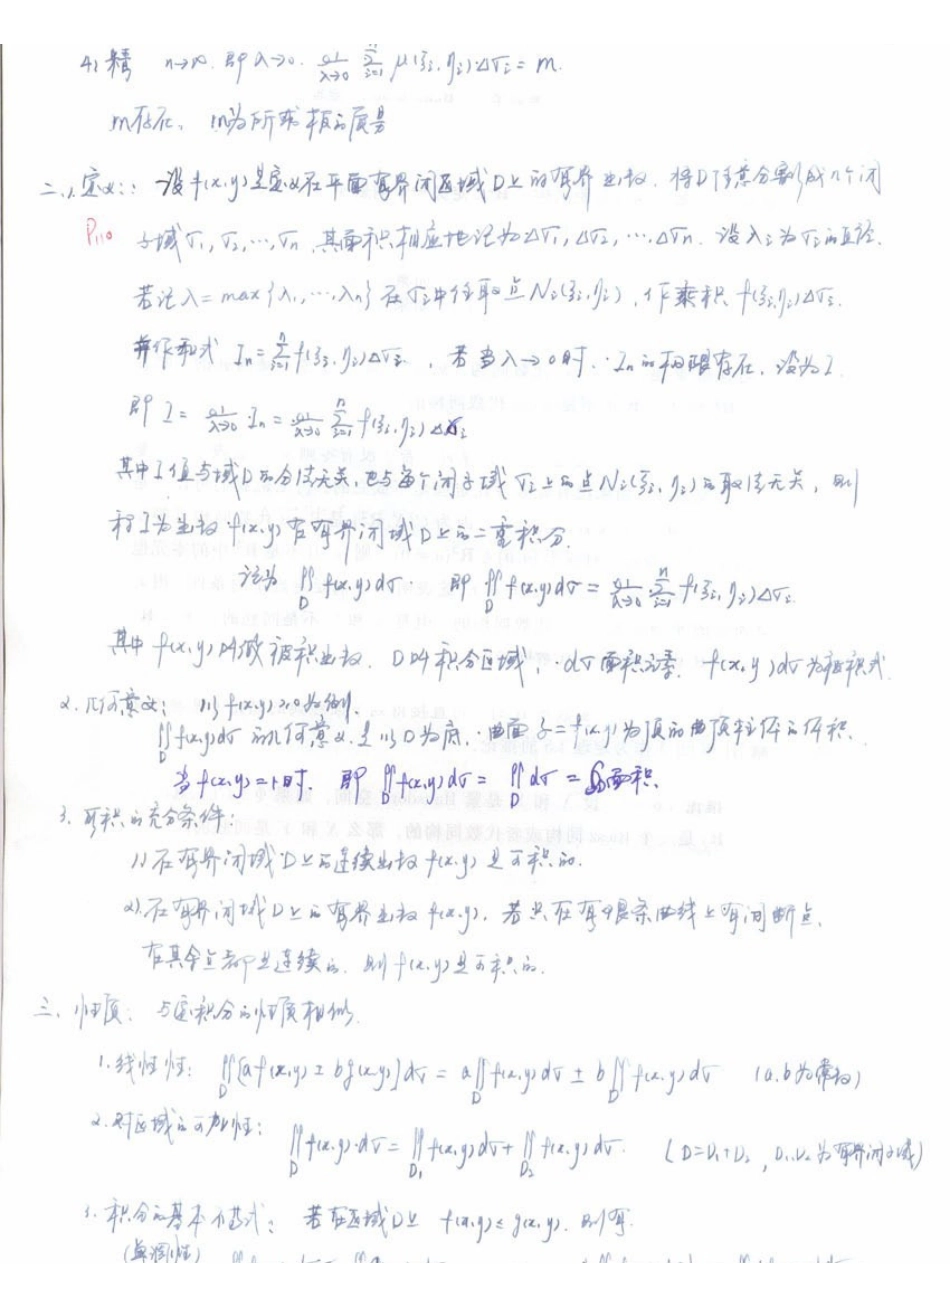 4) 精 n→∞. 即λ→0. lim_{λ→0} ∑_{i=1}^{n} μ(ξi,ηi)Δσi = m.
m存在, m为所求板的质量
二、1. 定义: 设f(x,y)是定义在平面有界闭区域D上的有界函数. 将D任意分割成n个闭
P110 子域σ1, σ2, …, σn, 其面积相应地记为Δσ1, Δσ2, …, Δσn. 设λi为σi的直径.
若记λ= max{λ1, …, λn} 在σi中任取点Ni(ξi,ηi), 作乘积 f(ξi,ηi)Δσi.
并作和式 In = ∑_{i=1}^{n} f(ξi,ηi)Δσi, 若当λ→0时, In的极限存在, 设为I.
即 I = lim_{λ→0} In = lim_{λ→0} ∑_{i=1}^{n} f(ξi,ηi)Δσi
其中I值与域D的分法无关, 也与每个闭子域σi上的点Ni(ξi,ηi)的取法无关, 则
称I为函数f(x,y)在有界闭域D上的二重积分.
记为 ∬_D f(x,y)dσ. 即 ∬_D f(x,y)dσ = lim_{λ→0} ∑_{i=1}^{n} f(ξi,ηi)Δσi.
其中 f(x,y)叫做被积函数. D叫积分区域, dσ面积元素. f(x,y)dσ为被积式
2. 几何意义: 以f(x,y)≥0为例.
∬_D f(x,y)dσ 的几何意义是以D为底, 曲面z=f(x,y)为顶的曲顶柱体的体积.
当f(x,y)=1时. 即 ∬_D f(x,y)dσ = ∬_D dσ = 面积.
3. 可积的充分条件:
1) 在有界闭域D上的连续函数f(x,y)是可积的.
2) 在有界闭域D上的有界函数f(x,y), 若只在有限条曲线上有间断点,
在其余点都是连续的, 则f(x,y)是可积的.
三、性质: 与定积分的性质相似.
1. 线性性: ∬_D [af(x,y) ± bg(x,y)]dσ = a∬_D f(x,y)dσ ± b∬_D f(x,y)dσ (a,b为常数)
2. 对区域的可加性:
∬_D f(x,y)dσ = ∬_{D1} f(x,y)dσ + ∬_{D2} f(x,y)dσ. (D=D1+D2, D1,D2为有界闭域)
3. 积分的基本不等式: 若在区域D上 f(x,y)≤g(x,y). 则有
(单调性)